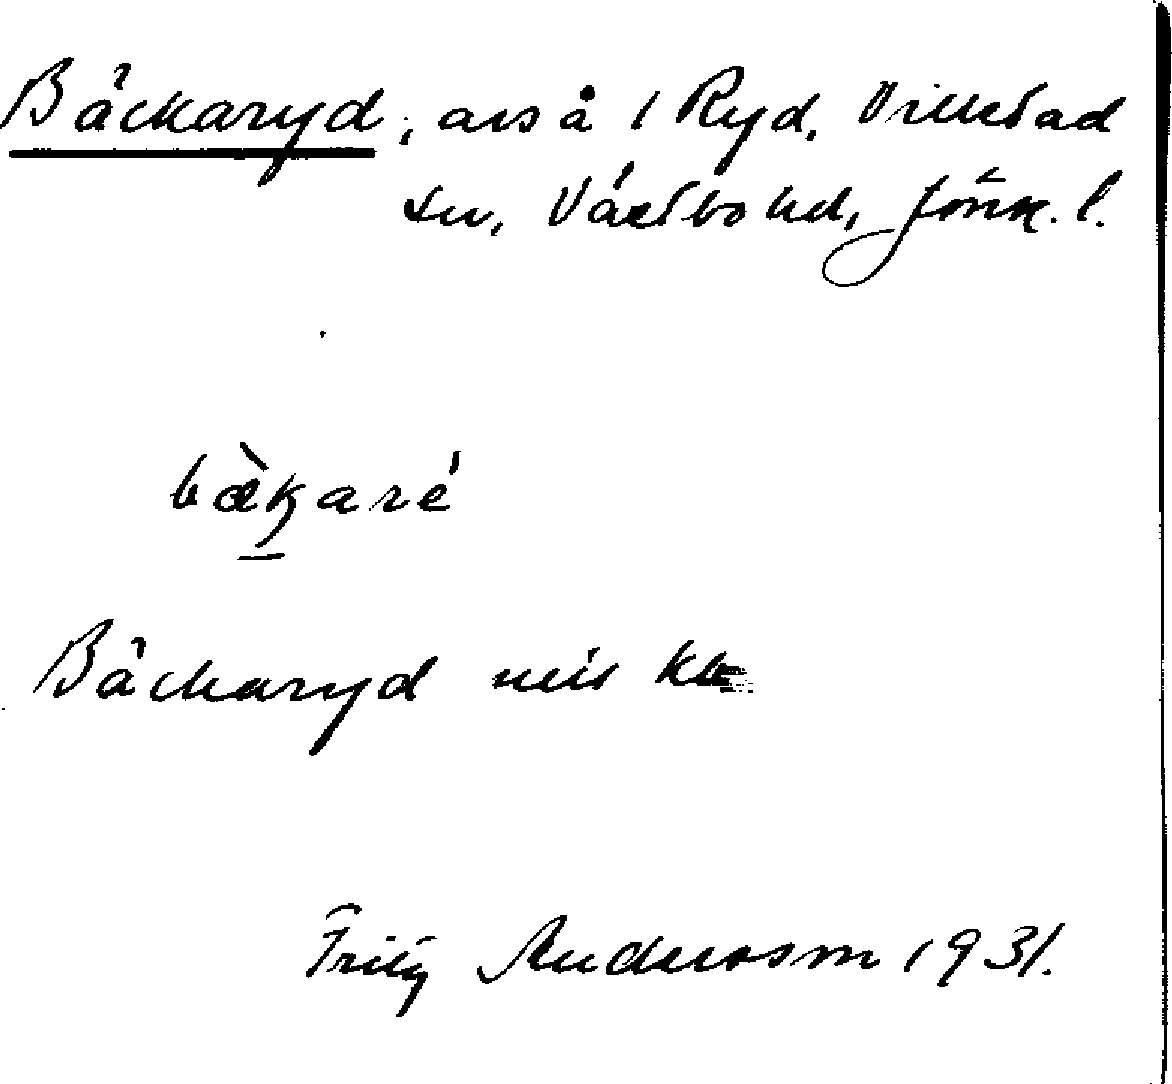 Bäckaryd, avs å 1 Ryd, Villstad
sn, Västbo hd, Jönk. l.
bæ̀karé
Bäckaryd
Fritz Andersson 1931.